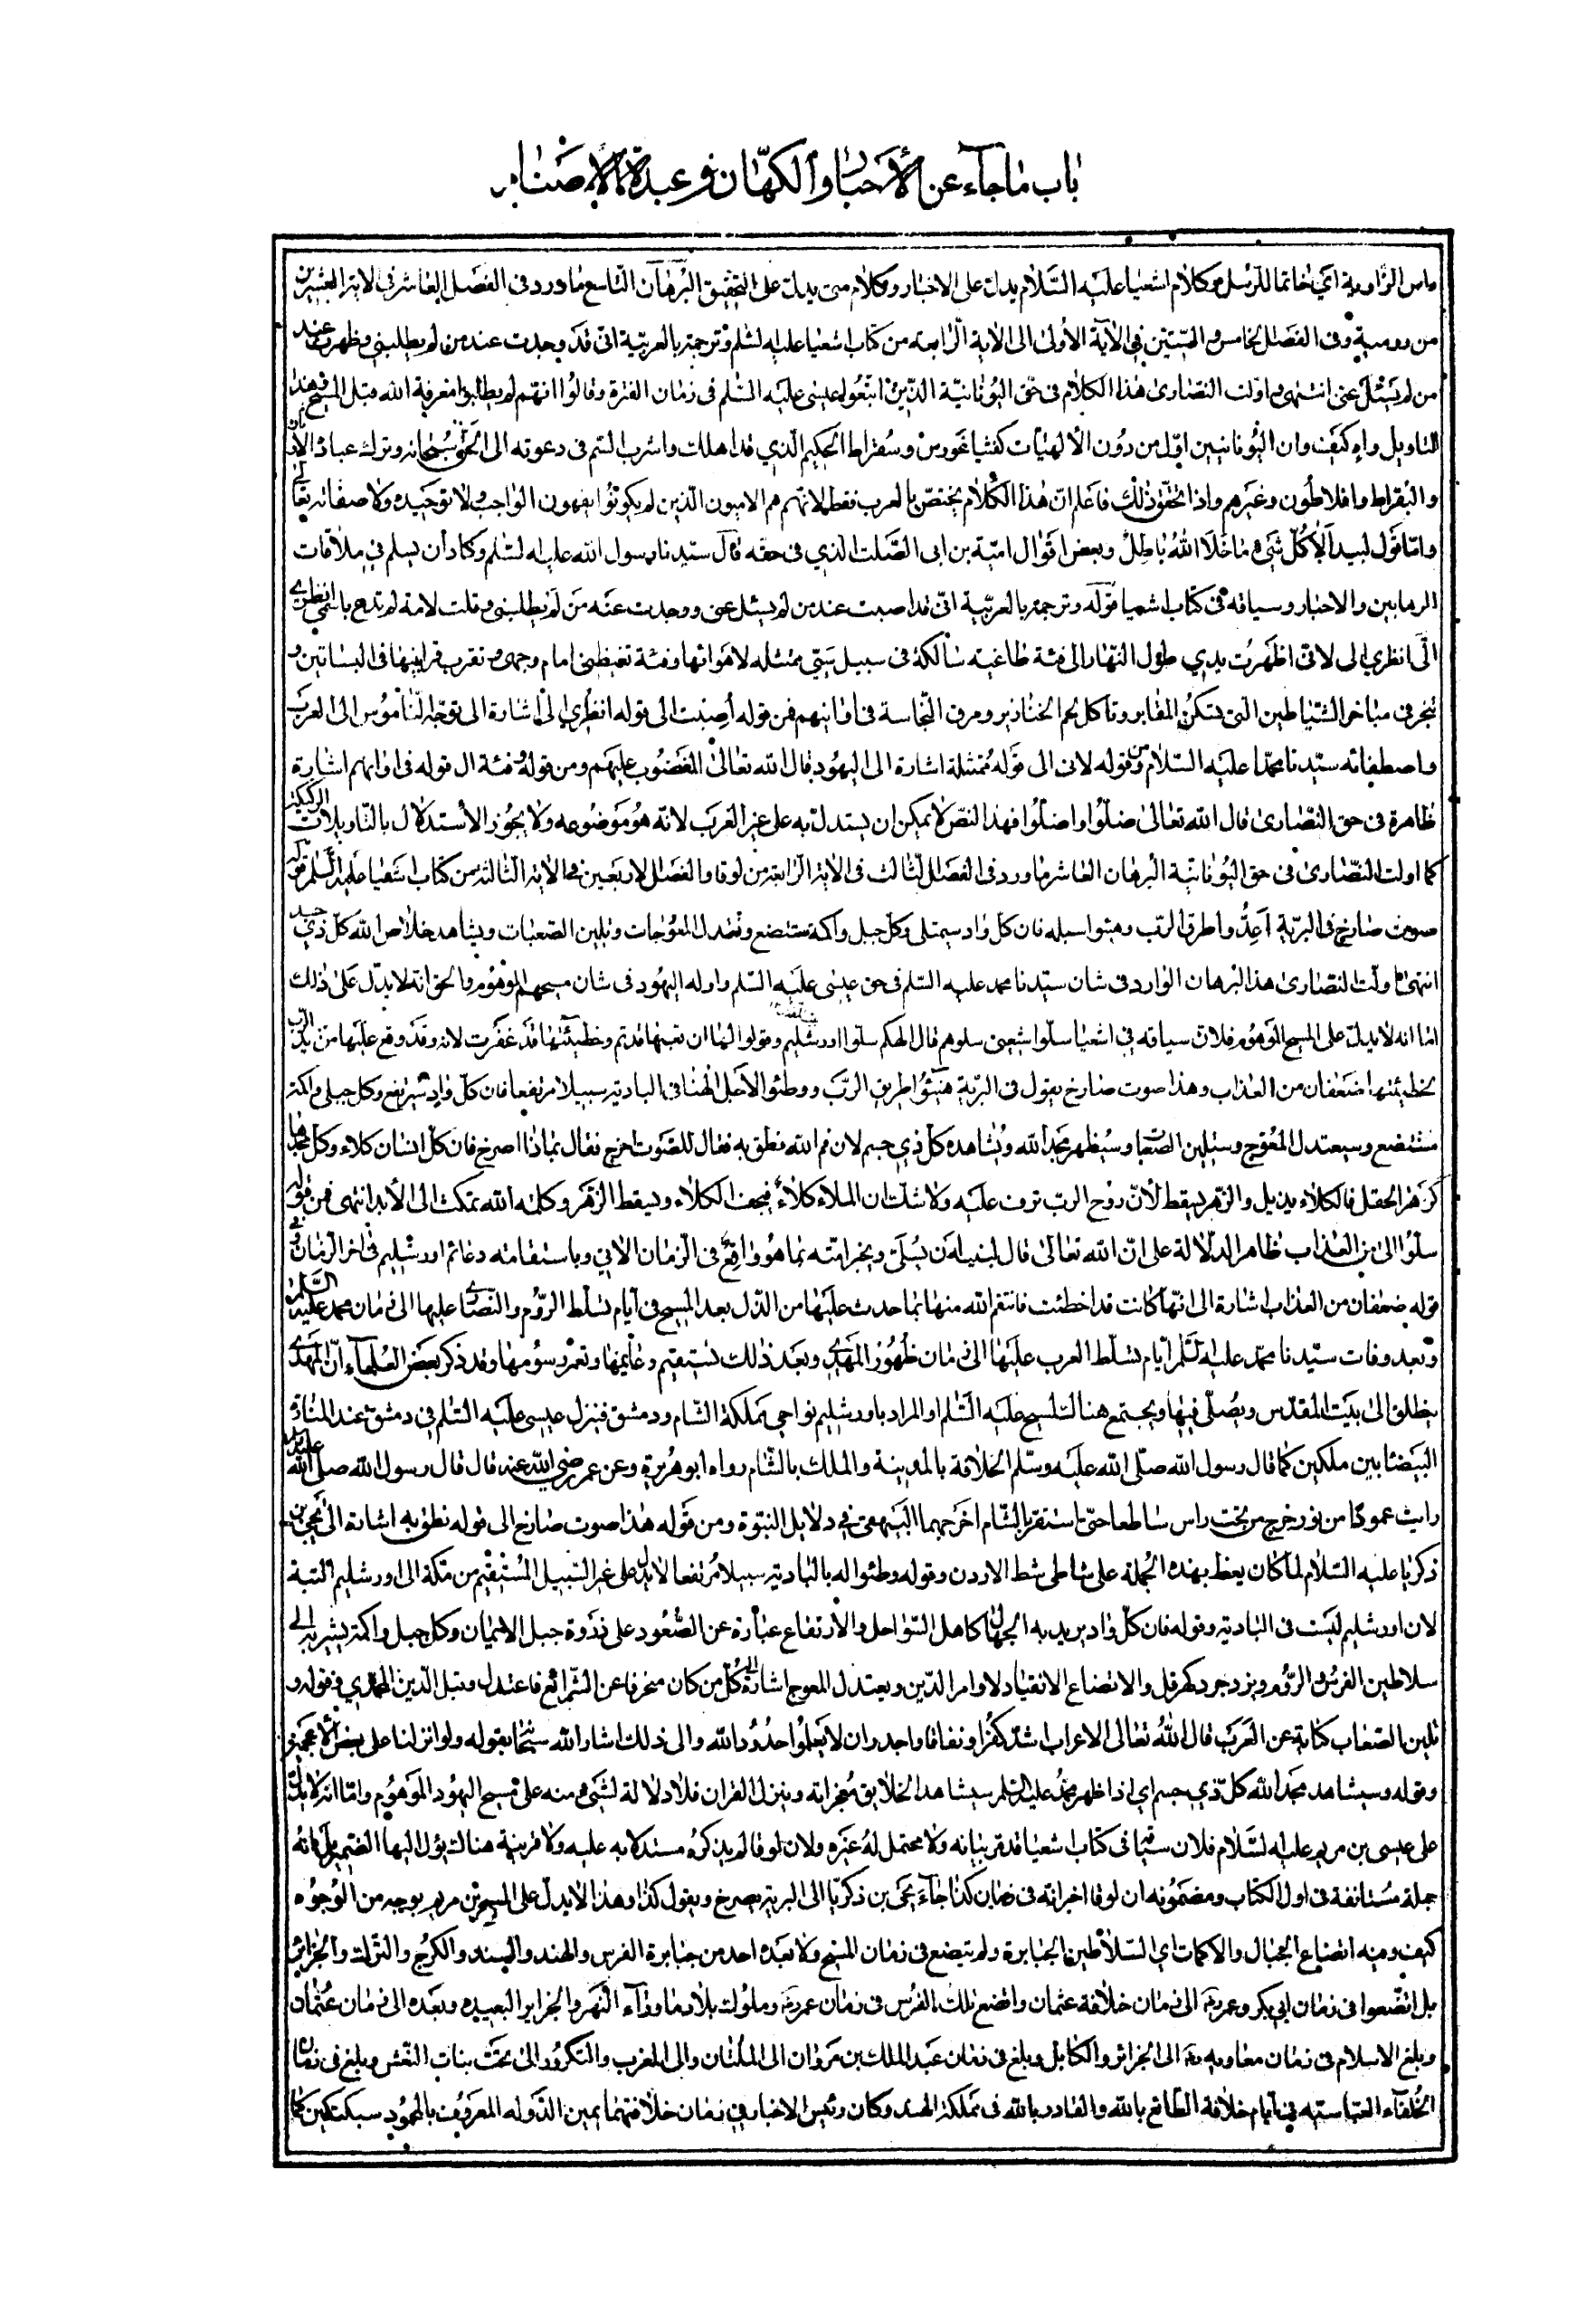 باب ما جاء عن الأحبار والكهان وعبدة الأصنام
راس الزاوية اي خاتما للرسل وكلام اشعيا عليه السلام يدل على الاخبار وكلام متى يدل على التحقيق البرهان التاسع ما ورد فى الفصل العاشر فى الاية العشرين
من رومية وفى الفصل الخامس والستين فى الآية الأولى الى الاية الرابعة من كتاب اشعيا عليه السلم وترجمته بالعربية انى قد وجدت عند من لم يطلبنى وظهرت عند
من لم يسئل عنى انتهى اولت النصارى هذا الكلام فى حق اليونانية الذين اتبعوا عيسى عليه السلم فى زمان الفترة وقالوا انهم لم يطالبوا معرفة الله قبل المسيح وهذا
التاويل واه كيف وان اليونانيين اول من دون الالهيات كفيثاغورس وسقراط الحكيم الذي قد اهلك واشرب السم فى دعوته الى الحق سبحانه وترك عبادة الأوثان
والبقراط وافلاطون وغيرهم واذا تحقق ذلك فاعلم ان هذا الكلام يختص بالعرب فقط لانهم هم الاميون الذين لم يكونوا يفهون الواجب ولا توحيده ولا صفاته تعالى
واما قول لبيد ألا كل شيء ما خلا الله باطل وبعض اقوال امية بن ابى الصلت الذي فى حقه قال سيدنا رسول الله عليه السلم وكاد أن يسلم فى ملاقات
الرهابين والاحبار وسياقه فى كتاب اشعيا قوله وترجمته بالعربية انى قد اصبت عند من لم يسئل عنى ووجدت عنه من لم يطلبنى وقلت لامة لم تدع باسمي انظري
الى انظري الى لانى اظهرت يدي طول النهار الى فئة طاغية سالكة فى سبيل سيئ ممتثلة لاهوائها وفئة تغيظنى امام وجهى وتقرب قرابينها فى البساتين و
تبخر فى مباخر الشياطين التى يسكن المقابر وتاكل لحم الخنازير ومرق النجاسة فى اوانيهم فمن قوله أصبت الى قوله انظري الى اشارة الى توجه الناموس الى العرب
واصطفائه سيدنا محمدا عليه السلام ومن قوله لانى الى قوله ممتثلة اشارة الى اليهود قال الله تعالى المغضوب عليهم ومن قوله وفئة الى قوله فى اوانيهم اشارة
ظاهرة فى حق النصارى قال الله تعالى ضلوا واضلوا فهذا النص لا يمكن ان يستدل به على غير العرب لانه هو موضوعه ولا يجوز الأستدلال بالتاويلات الركيكة
كما اولت النصارى فى حق اليونانية البرهان العاشر ما ورد فى الفصل الثالث فى الاية الرابعة من لوقا والفصل الاربعين فى الاية الثالثة من كتاب اشعيا عليه السلم قوله
صوت صارخ فى البرية أعدوا طرق الرب وهيئوا سبله فان كل واد سيمتلى وكل جبل وأكمة ستتضع وتعتدل المعوجات وتلين الصعبات ويشاهد خلاص الله كل ذي جسد
انتهى اولت النصارى هذا البرهان الوارد فى شان سيدنا محمد عليه السلم فى حق عيسى عليه السلم واوله اليهود فى شان مسيحهم الموهوم والحق انه لا يدل على ذلك
اما انه لا يدل على المسيح الموهوم فلان سياقه فى اشعيا سلوا شعبى سلوهم قال الهكم سلوا اورشليم وقولوا لها ان تعبها قد تم وخطيئتها قد غفرت لانه وقد وقع عليها من يد الرب
بخطيئتها ضعفان من العذاب وهذا صوت صارخ يقول فى البرية هيئوا طريق الرب ووطئوا لأجل الهنا فى البادية سبيلا مرتفعا فان كل واد سيرتفع وكل جبل واكمة
ستتضع وسيعتدل المعوج وستلين الصعاب وسيظهر مجد الله ويشاهده كل ذي جسم لان فم الله نطق به فقال للصوت اصرخ فقال بماذا اصرخ فان كل انسان كلاء وكل مجدها
كزهر الحقل فالكلاء يذبل والزهر يسقط لأن روح الرب ترف عليه ولا شك ان الملاء كلاء فيجف الكلاء ويسقط الزهر وكلمة الله تمكث الى الأبد انتهى فمن قوله
سلوا الى من العذاب ظاهر الدلالة على ان الله تعالى قال لنبيه أن يسلى ويخبر امته بما هو واقع فى الزمان الآتي وباستقامته دعائم اورشليم فى اخر الزمان وفى
قوله ضعفان من العذاب اشارة الى انها كانت قد اخطئت فانتقم الله منها بما حدث عليها من الذل بعد المسيح فى أيام تسلط الروم والنصارى عليها الى زمان محمد عليه السلم
وبعد وفات سيدنا محمد عليه السلم أيام تسلط العرب عليها الى زمان ظهور المهدي وبعد ذلك تستقيم دعائمها وتعمر رسومها وقد ذكر بعض العلماء ان المهدي
ينطلق الى بيت المقدس ويصلى فيها ويجتمع هنالك المسيح عليه السلم او المراد باورشليم نواحى مملكة الشام ودمشق فينزل عيسى عليه السلم فى دمشق عند المنارة
البيضا بين ملكين كما قال رسول الله صلى الله عليه وسلم الخلافة بالمدينة والملك بالشام رواه ابو هريرة وعن عمر رضى الله عنه قال قال رسول الله صلى الله عليه وسلم
رايت عمودا من نور خرج من تحت راس ساطعا حتى استقر بالشام اخرجهما البيهقى فى دلايل النبوة ومن قوله هذا صوت صارخ الى قوله نطق به اشارة الى يحيى بن
ذكريا عليه السلام لما كان يعظ بهذه الجملة على شاطى شط الاردن وقوله وطئوا له بالبادية سبيلا مرتفعا لا يدل على غير السبيل المستقيم من مكة الى اورشليم البتة
لان اورشليم ليست فى البادية وقوله فان كل واد يريد به الجهال كاهل السواحل والأرتفاع عبارة عن الصعود على ذروة جبل الايمان وكل جبل واكمة يشير به الى
سلاطين الفرس والروم ويزدجرد كهرقل والاتضاع الانقياد لاوامر الدين ويعتدل المعوج اشارة الى كل من كان منحرفا عن الشرائع فاعتدل وقبل الدين المحمدي وقوله و
تلين الصعاب كناية عن العرب قال الله تعالى الاعراب اشد كفرا ونفاقا واجدر ان لا يعلموا حدود الله والى ذلك اشار الله سبحانه بقوله ولو انزلنا على بعض الأعجمين
وقوله وسيشاهد مجد الله كل ذي جسم اي اذا ظهر محمد عليه السلم سيشاهد الخلايق معجزاته وينزل القران فلا دلالة لشيء منه على مسيح اليهود الموهوم واما انه لا يدل
على عيسى بن مريم عليه السلام فلان سيما فى كتاب اشعيا قد مر بيانه ولا محتمل له غيره ولان لوقا لم يذكره مستدلا به عليه ولا قرينة هنالك يؤل اليها الضمير بل كانه
جملة مستانفة فى اول الكتاب ومضمونه ان لوقا اخبر انه فى زمان كذا جاء يحيى بن ذكريا الى البرية يصرخ ويقول كذا وهذا لا يدل على المسيح بن مريم بوجه من الوجوه
كيف ومنه اتضاع الجبال والاكمات اي السلاطين الجبابرة ولم يتضع فى زمان المسيح ولا بعده احد من جبابرة الفرس والهند والسند والكرج والترك والجزائر
بل اتضعوا فى زمان ابى بكر وعمر الى زمان خلافة عثمان واتضع ملك الفرس فى زمان عمر وملوك بلاد ما وراء النهر والجزاير البعيده وبعده الى زمان عثمان
وبلغ الاسلام فى زمان معاويه الى الجزائر والكابل وبلغ فى زمان عبد الملك بن مروان الى الملتان والى المغرب والتكرور الى تحت بنات النعش وبلغ فى زمان
الخلفاء العباسية فى أيام خلافة الطائع بالله والقادر بالله فى مملكة الهند وكان رئيس الاخبار فى زمان خلافتهما يمين الدوله المعروف بالمحمود سبكتكين كما